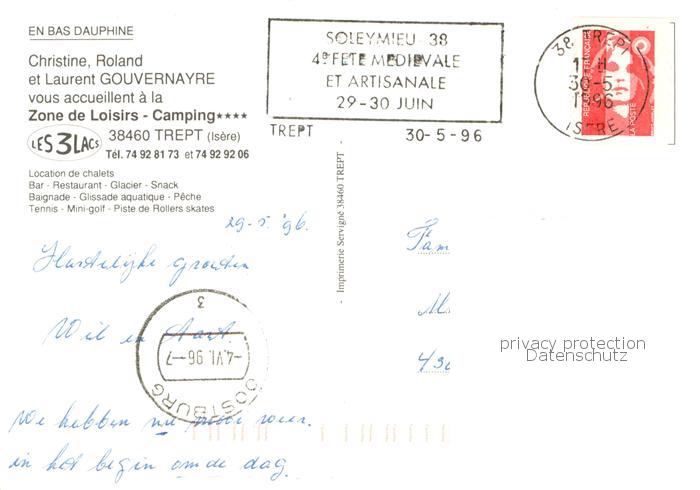 EN BAS DAUPHINE
Christine, Roland
et Laurent GOUVERNAYRE
vous accueillent à la
Zone de Loisirs - Camping★★★★
LES 3 LACS
38460 TREPT (Isère)
Tél. 74 92 81 73 et 74 92 92 06
Location de chalets
Bar - Restaurant - Glacier - Snack
Baignade - Glissade aquatique - Pêche
Tennis - Mini-golf - Piste de Rollers skates
SOLEYMIEU 38
4e FETE MEDIEVALE
ET ARTISANALE
29-30 JUIN
TREPT 30-5-96
38 TREPT
30-5
1996
ISERE
REPUBLIQUE FRANÇAISE
LA POSTE
- Imprimerie Servigné 38460 TREPT -
29-5-'96.
Hartelijke groeten
Wil en Aart.
3
-4.VI.96-7
OOSTBURG
We hebben nu mooi weer.
in het begin om de dag.
Fam
privacy protection
Datenschutz